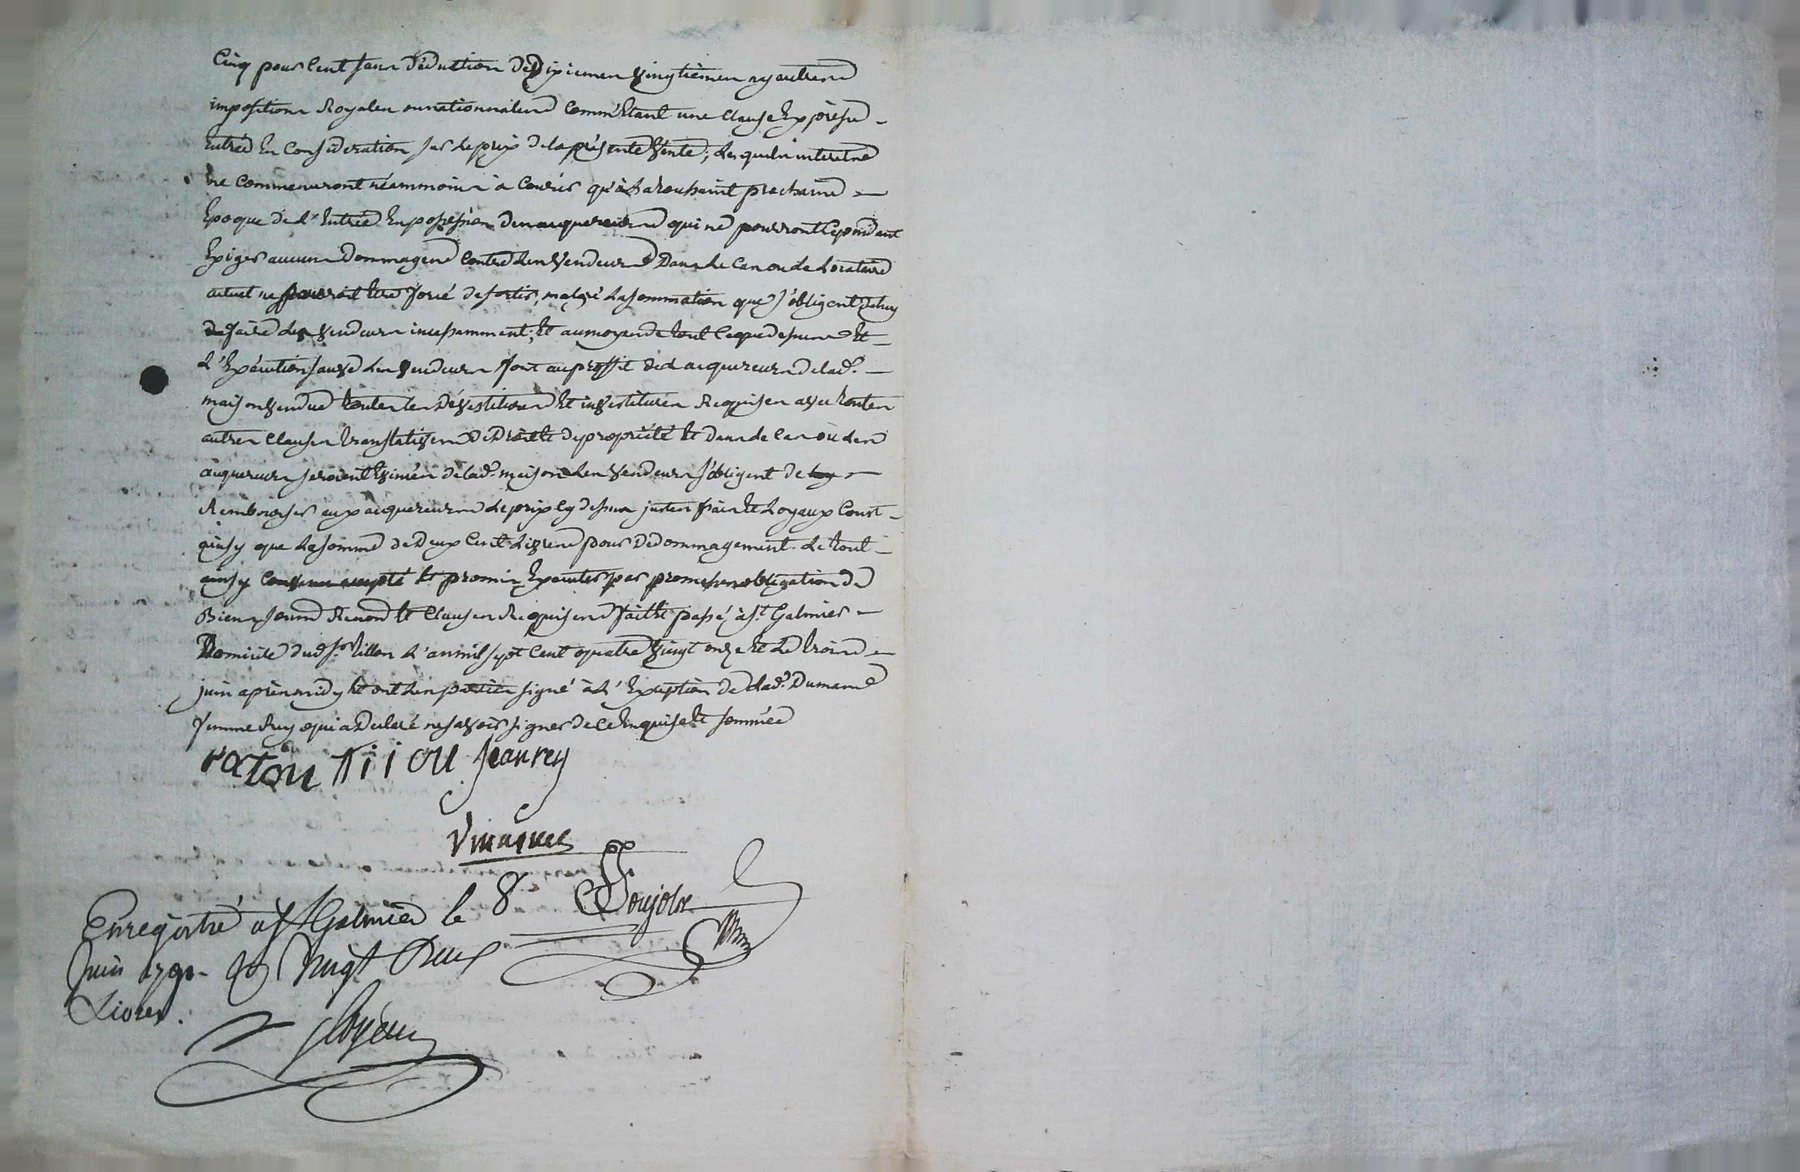 Cinq pour Cent sans déduction de Dixiemes Vingtièmes ny autres
impositions Royales ou nationnales Comm'Etant une Clause Expresse
Entrée En Consideration sur le prix de la présente Vente; lesquels interets
ne Commenceront néammoins à Courir qu'à la toussaint prochaine
Epoque de l'Entrée En possession des acquereurs qui ne pourront Cependant
Exiger aucuns Dommages Contre les Vendeurs Dans le Cas ou le Locataire
actuel ne pourroit être forcé de sortir, malgré la sommation que s'obligent
de faire les Vendeurs incessamment; Et au moyen de tout Ce que dessus Et
L'Exécution sauve les Vendeurs font au proffit des acquereurs de lad.e
maison Vendue toutes les Dévestitures Et investitures Requises avec toutes
autres Clauses translatives de Droit de propriété Et Dans le Cas où les
acquereurs seroient Evincés de lad.e maison les Vendeurs s'obligent de
Rembourser aux acquereurs le prix Cy dessus justes frais Et Loyaux Cout
ainsy que la somme de Deux Cent Livres pour Dedommagement. Le tout
ainsy accepté Et promis Executer par promesses obligation de
Biens soumis Renon Et Clauses Requises fait Et passé à St. Galmier
Domicile dud. Sr. tillon L'an mil sept Cent quatre Vingt onze Et Le trois
juin après midy Et ont Les parties signé à L'Exception de lad.e Dumas
femme Rey qui a Declaré ne savoir signer de Ce Enquise Et sommée
raton Jean rey
Enregistré à St Galmier le 8
Juin 1791 Vingt Deux
Livres.